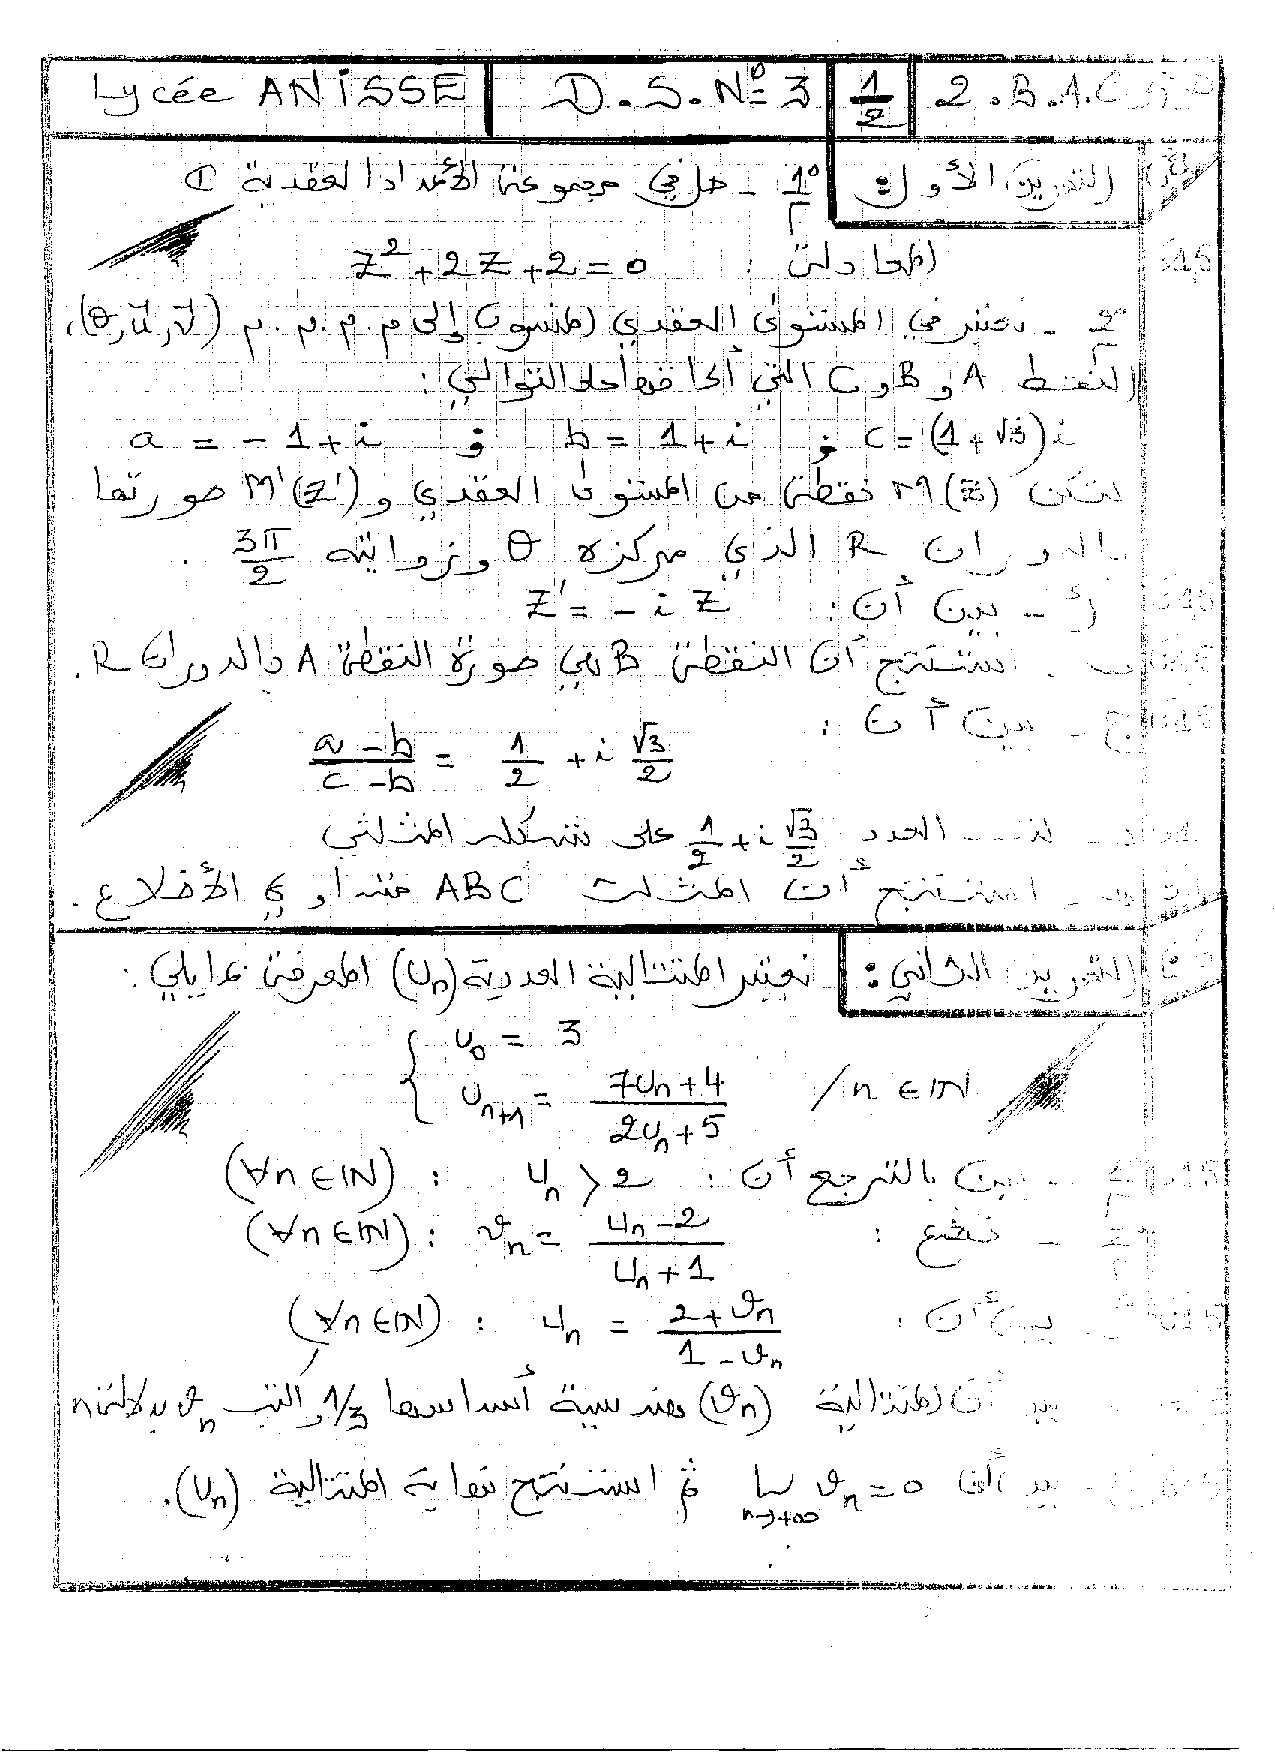 Lycée ANISSE D.S.Nº 3 1/2 2.B.A.C
التمرين الأول: 1° - حل في مجموعة الأعداد العقدية ℂ
المعادلة : z²+2z+2=0
2° - نعتبر في المستوى العقدي المنسوب إلى م.م.م.م (O,u⃗,v⃗),
النقط A و B و C التي ألحاقها على التوالي :
a = -1+i و b = 1+i و c = (1+√3)i
لتكن M(z) نقطة من المستوى العقدي و M'(z') صورتها
بالدوران R الذي مركزه O وزاويته 3π/2 .
أ - بين أن : z' = -i z
ب - استنتج أن النقطة B هي صورة النقطة A بالدوران R.
ج - بين أن :
(a-b)/(c-b) = 1/2 + i √3/2
العدد 1/2 + i √3/2 على شكله المثلثي
هـ - استنتج أن المثلث ABC متساوي الأضلاع .
التمرين الثاني : نعتبر المتتالية العددية (Uₙ) المعرفة بما يلي :
{ U₀ = 3
Uₙ₊₁ = (7Uₙ+4)/(2Uₙ+5) / n ∈ ℕ
1° - بين بالترجع أن : Uₙ > 2 : (∀n ∈ ℕ)
2° - نضع : vₙ = (Uₙ-2)/(Uₙ+1) : (∀n ∈ ℕ)
أ - بين أن : Uₙ = (2+vₙ)/(1-vₙ) : (∀n ∈ ℕ)
بين أن المتتالية (vₙ) هندسية أساسها 1/3 واكتب vₙ بدلالة n
ج - بين أن lim vₙ = 0 n→+∞ ثم استنتج نهاية المتتالية (Uₙ).